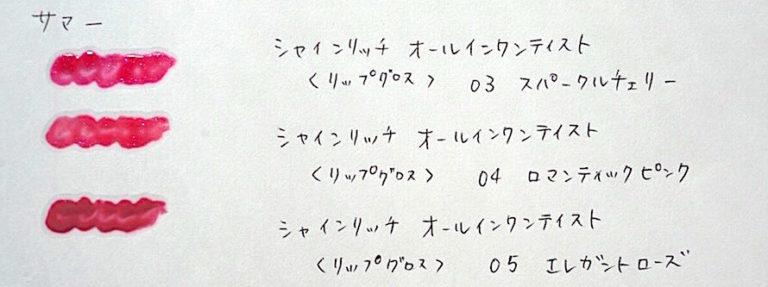 サマー
シャインリッチ オールインワンテイスト
〈リップグロス〉 03 スパークルチェリー
シャインリッチ オールインワンテイスト
〈リップグロス〉 04 ロマンティックピンク
シャインリッチ オールインワンテイスト
〈リップグロス〉 05 エレガントローズ